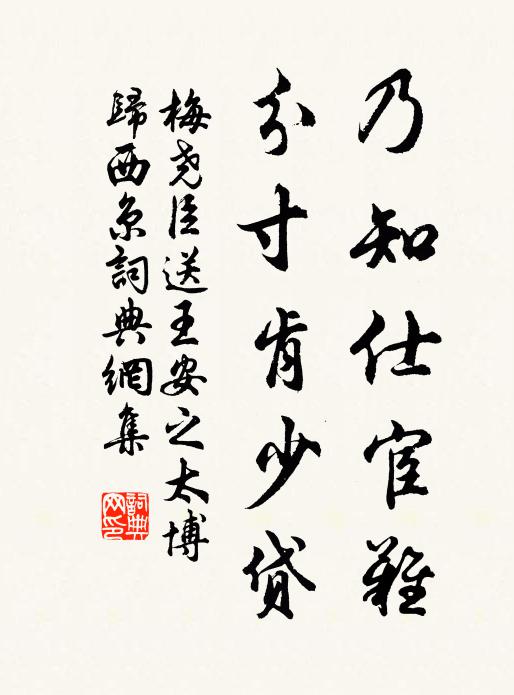 乃知仕宦難
分寸肯少貸
梅堯臣送王安之太博
歸西京詞典網集
詞典
网印